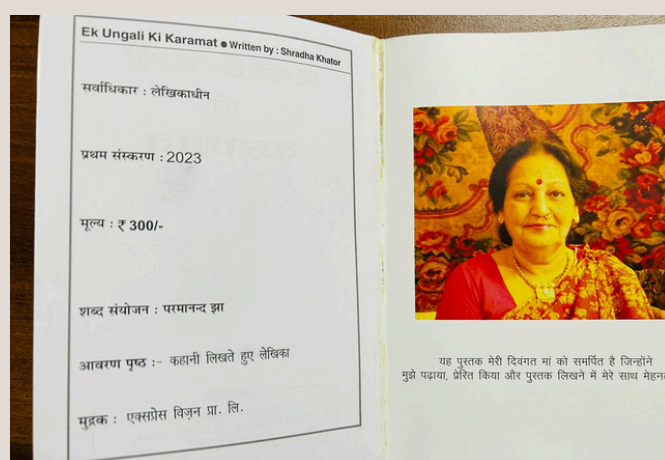 Ek Ungali Ki Karamat ● Written by : Shradha Khator
सर्वाधिकार : लेखिकाधीन
प्रथम संस्करण : 2023
मूल्य : ₹ 300/-
शब्द संयोजन : परमानन्द झा
आवरण पृष्ठ :- कहानी लिखते हुए लेखिका
मुद्रक : एक्सप्रेस विज़न प्रा. लि.
यह पुस्तक मेरी दिवंगत मां को समर्पित है जिन्होंने
मुझे पढ़ाया, प्रेरित किया और पुस्तक लिखने में मेरे साथ